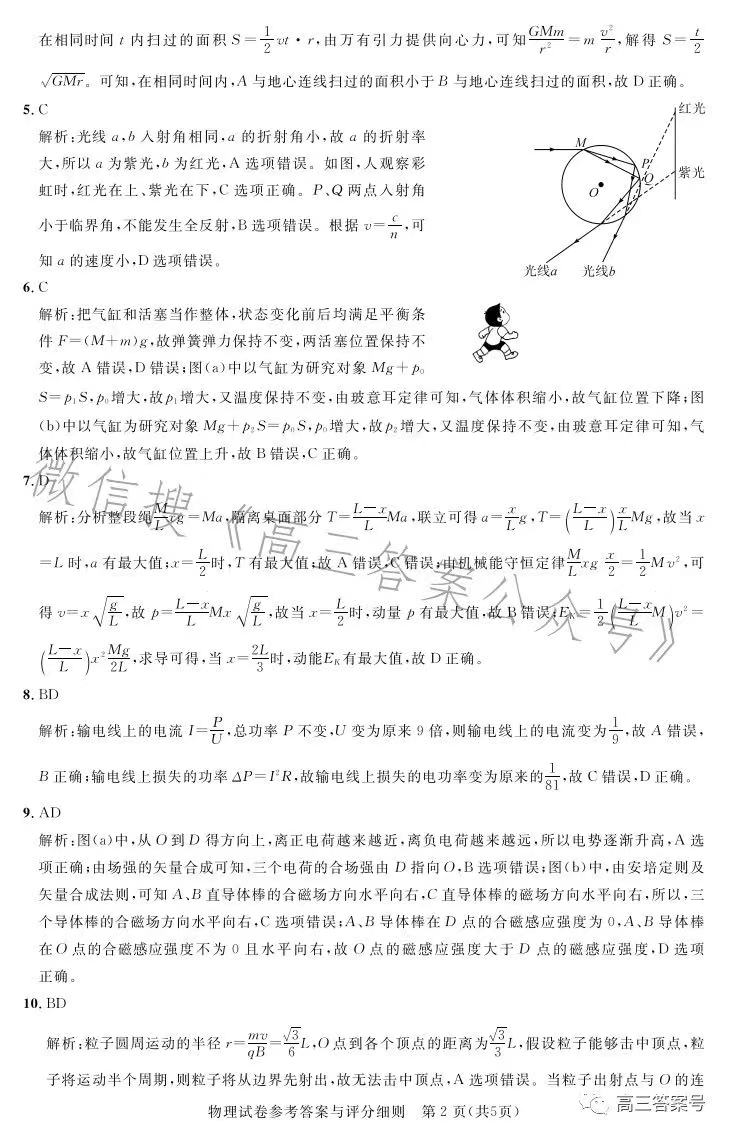 在相同时间 t 内扫过的面积 S=1/2 vt·r,由万有引力提供向心力,可知GMm/r²=m v²/r,解得 S=t/2
√GMr。可知,在相同时间内,A 与地心连线扫过的面积小于 B 与地心连线扫过的面积,故 D 正确。
5. C
解析:光线 a,b 入射角相同,a 的折射角小,故 a 的折射率
大,所以 a 为紫光,b 为红光,A 选项错误。如图,人观察彩
虹时,红光在上、紫光在下,C 选项正确。P、Q 两点入射角
小于临界角,不能发生全反射,B 选项错误。根据 v=c/n,可
知 a 的速度小,D 选项错误。
红光
M
P
Q
紫光
O
光线a
光线b
6. C
解析:把气缸和活塞当作整体,状态变化前后均满足平衡条
件 F=(M+m)g,故弹簧弹力保持不变,两活塞位置保持不
变,故 A 错误,D 错误;图(a)中以气缸为研究对象 Mg+p₀
S=p₁S,p₀增大,故p₁增大,又温度保持不变,由玻意耳定律可知,气体体积缩小,故气缸位置下降;图
(b)中以气缸为研究对象 Mg+p₂S=p₀S,p₀增大,故p₂增大,又温度保持不变,由玻意耳定律可知,气
体体积缩小,故气缸位置上升,故 B 错误,C 正确。
7. D
解析:分析整段绳M/L xg=Ma,隔离桌面部分 T=L-x/L Ma,联立可得 a=x/L g,T=(L-x/L)x/L Mg,故当 x
=L 时,a 有最大值;x=L/2时,T 有最大值;故 A 错误,C 错误;由机械能守恒定律M/L xg x/2=1/2 Mv²,可
得 v=x√g/L,故 p=L-x/L Mx√g/L,故当 x=L/2时,动量 p 有最大值,故 B 错误;Eₖ=1/2(L-x/L M)v²=
(L-x/L)x² Mg/2L,求导可得,当 x=2L/3时,动能Eₖ有最大值,故 D 正确。
8. BD
解析:输电线上的电流 I=P/U,总功率 P 不变,U 变为原来 9 倍,则输电线上的电流变为1/9,故 A 错误,
B 正确;输电线上损失的功率 ΔP=I²R,故输电线上损失的电功率变为原来的1/81,故 C 错误,D 正确。
9. AD
解析:图(a)中,从 O 到 D 得方向上,离正电荷越来越近,离负电荷越来越远,所以电势逐渐升高,A 选
项正确;由场强的矢量合成可知,三个电荷的合场强由 D 指向O,B 选项错误;图(b)中,由安培定则及
矢量合成法则,可知 A、B 直导体棒的合磁场方向水平向右,C 直导体棒的磁场方向水平向右,所以,三
个导体棒的合磁场方向水平向右,C 选项错误;A、B 导体棒在 D 点的合磁感应强度为 0,A、B 导体棒
在 O 点的合磁感应强度不为 0 且水平向右,故 O 点的磁感应强度大于 D 点的磁感应强度,D 选项
正确。
10. BD
解析:粒子圆周运动的半径 r=mv/qB=√3/6 L,O 点到各个顶点的距离为√3/3 L,假设粒子能够击中顶点,粒
子将运动半个周期,则粒子将从边界先射出,故无法击中顶点,A 选项错误。当粒子出射点与 O 的连
物理试卷参考答案与评分细则 第 2 页(共5页)
高三答案号
微信搜《高三答案公众号》